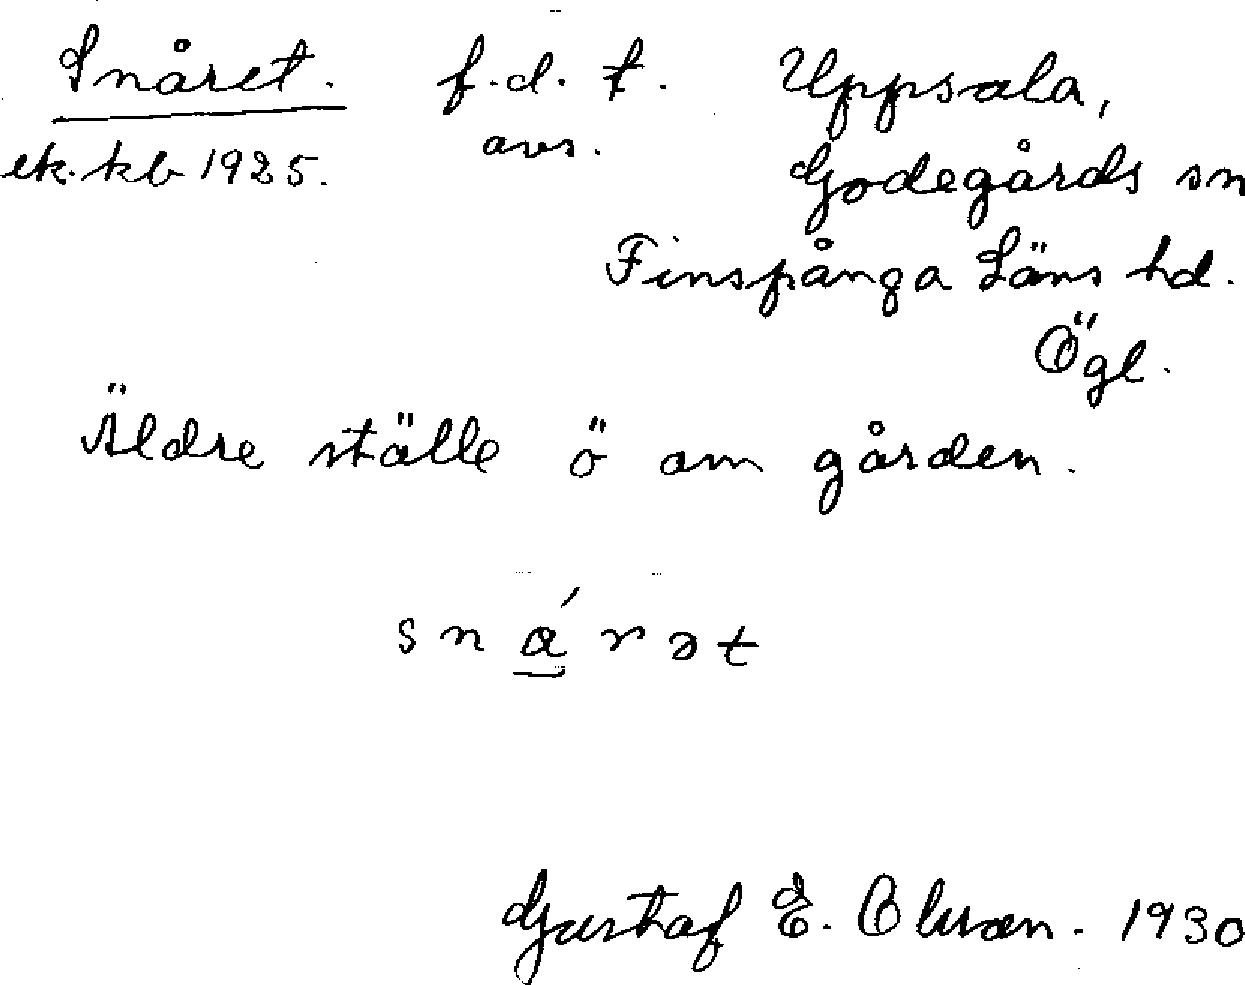 Snåret. f.d. t. Uppsala,
ek. kb 1925. avs. Godegårds sn
Finspånga Läns hd.
Ögl.
Äldre ställe ö om gården.
snárət
Gustaf E. Olsson. 1930